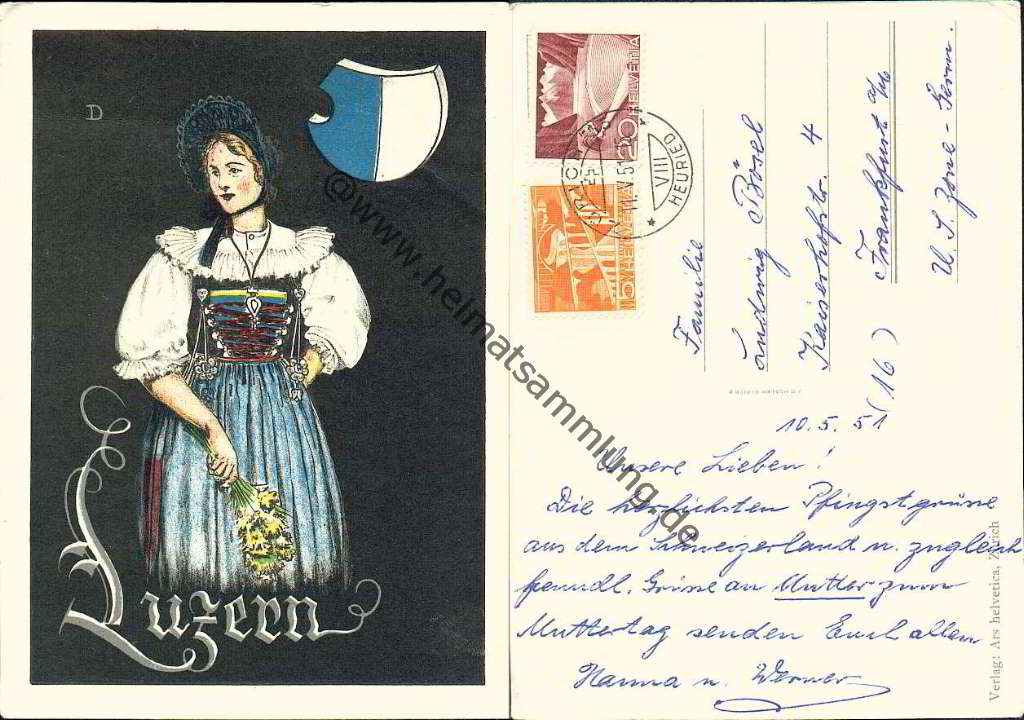 D
Luzern
HELVETIA
20
HELVETIA
5
HEURIED
VIII
V.51
Familie
Ludwig Bösel
Kaiserhofstr. 4
(16) Frankfurt a/M
U. S. Zone - Germ.
10.5.51
Unsere Lieben!
Die herzlichsten Pfingstgrüsse
aus dem Schweizerland u. zugleich
freundl. Grüsse an Mutter zum
Muttertag senden Euch allen
Hanna u. Werner
Verlag: Ars helvetica, Zürich
@www.heimatsammlung.de